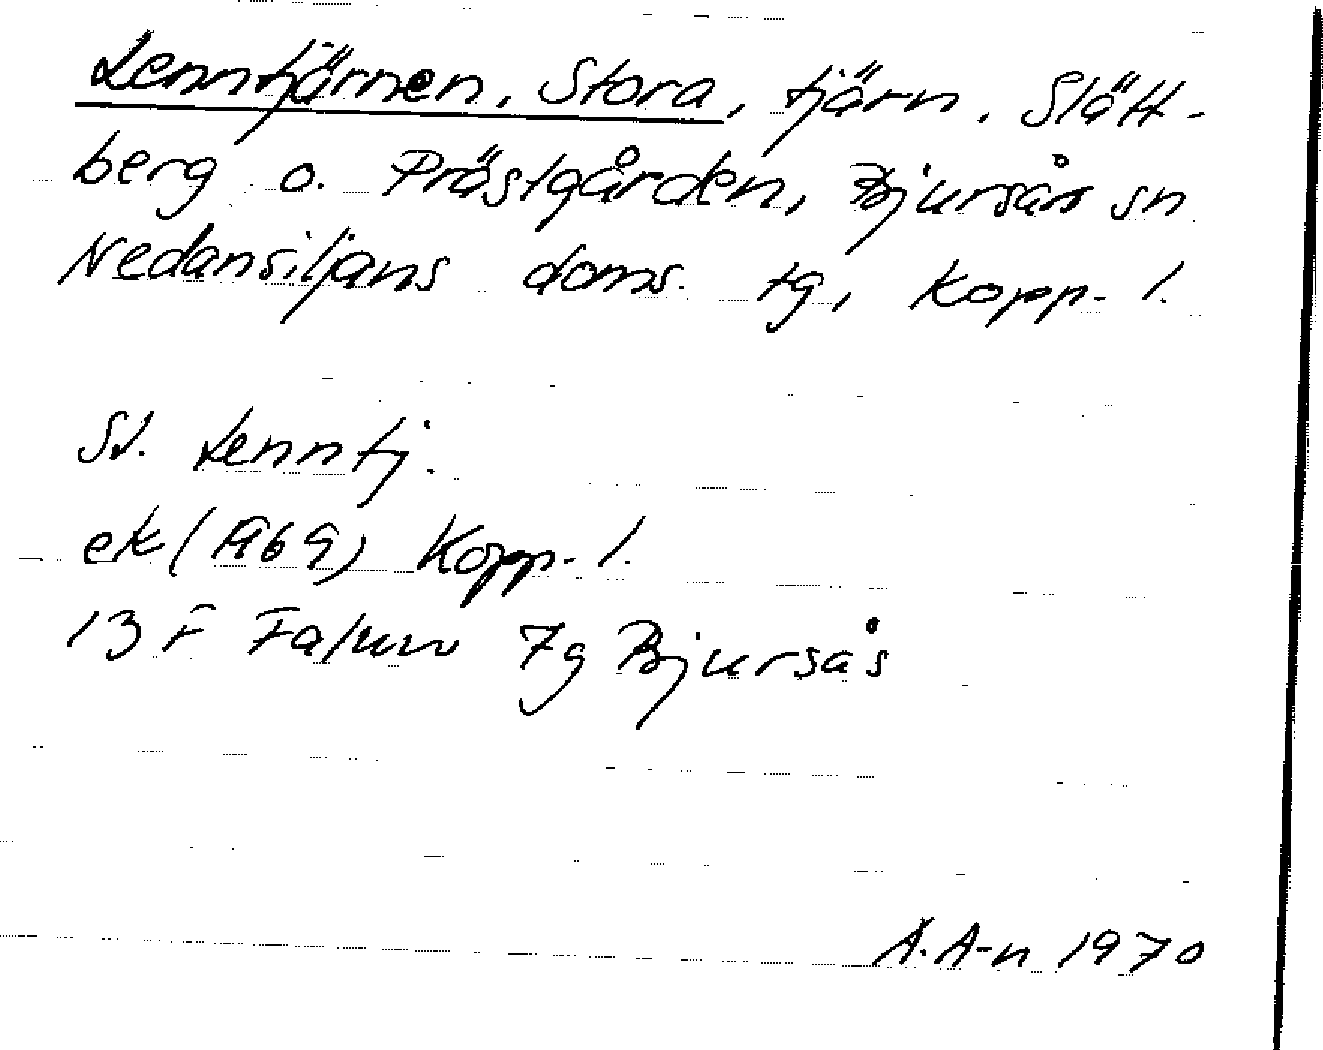 Lenntjärnen, Stora, tjärn, Slätt-
berg o. Prästgården, Bjursås sn
Nedansiljans doms. tg, Kopp. l.
St. Lenntj.
ek (1969) Kopp. l.
13 F Falun 7g Bjursås
A. A-n 1970